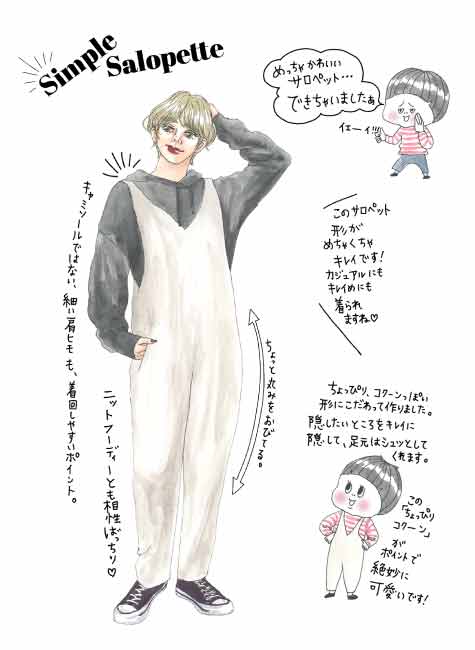 Simple
Salopette
めっちゃかわいい
サロペット…
できちゃいましたぁ
イエーイ!!!
このサロペット
形が
めちゃくちゃ
キレイです!
カジュアルにも
キレイめにも
着られ
ますね♡
キャミソールではない、細い肩ヒモも、着回しやすいポイント。
ニットフーディーとも相性ばっちり♡
ちょっと丸みをおびてる。
ちょっぴり、コクーンっぽい
形にこだわって作りました。
隠したいところをキレイに
隠して、足元はシュッとして
くれます。
この
「ちょっぴり
コクーン」
が
ポイントで
絶妙に
可愛いです!